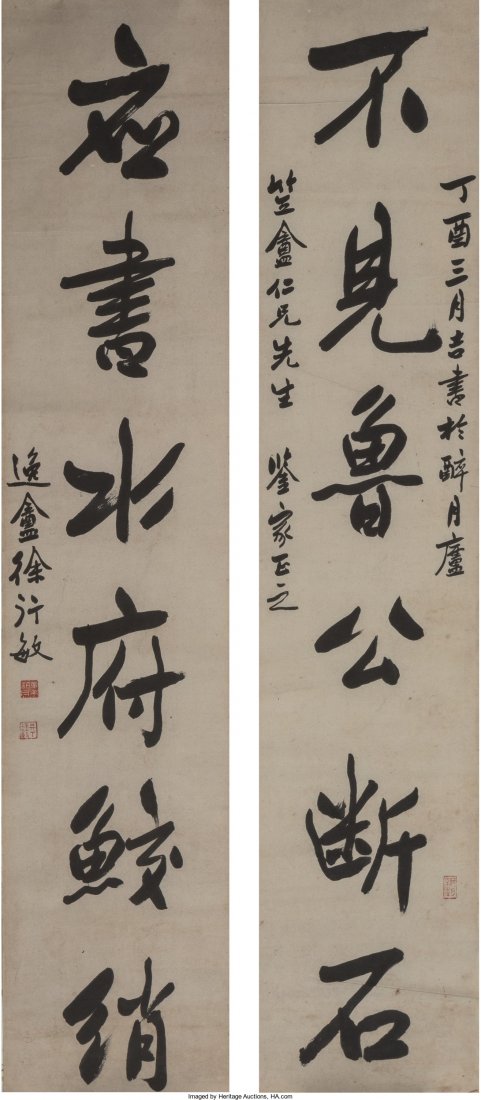 丁酉三月吉書於醉月廬
不見魯公斷石
笠盦仁兄先生 鑒家正之
應書水府鮫綃
逸盦徐行敏
Imaged by Heritage Auctions, HA.com